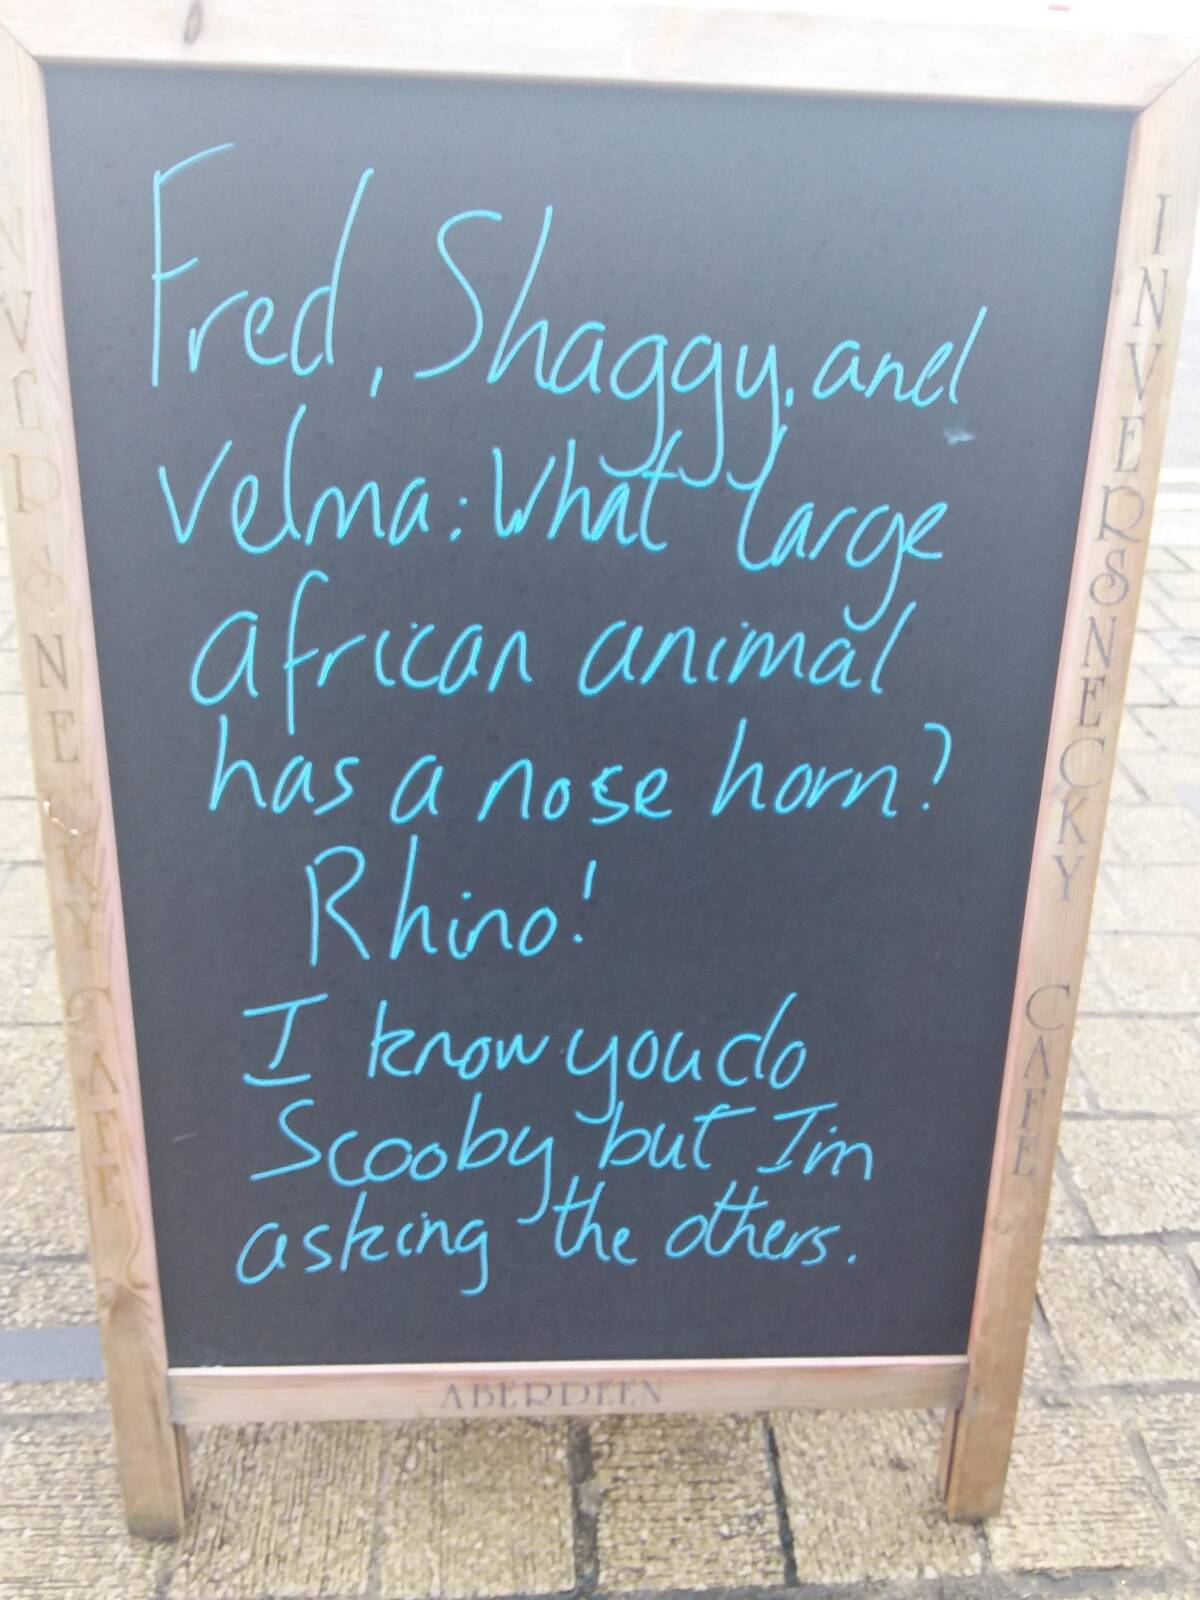 Fred, Shaggy, and
Velma: What large
african animal
has a nose horn?
Rhino!
I know you do
Scooby but I'm
asking the others.
ABERDEEN
INVERSNECKY CAFE
INVERSNECKY CAFE